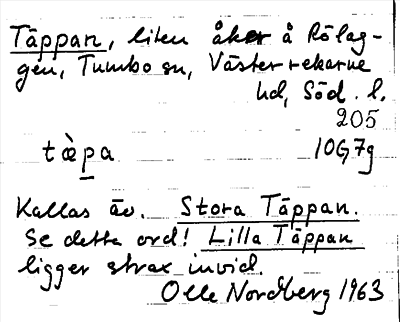 Täppan, liten åker å Rölag-
gen, Tumbo sn, Västerrekarne
hd, Söd. l.
205
tæ̀pa 10G7g
Kallas äv. Stora Täppan.
Se detta ord! Lilla Täppan
ligger strax invid.
Olle Nordberg 1963